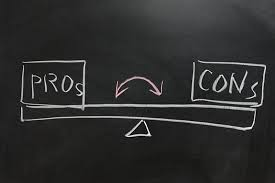 PROs
CONs